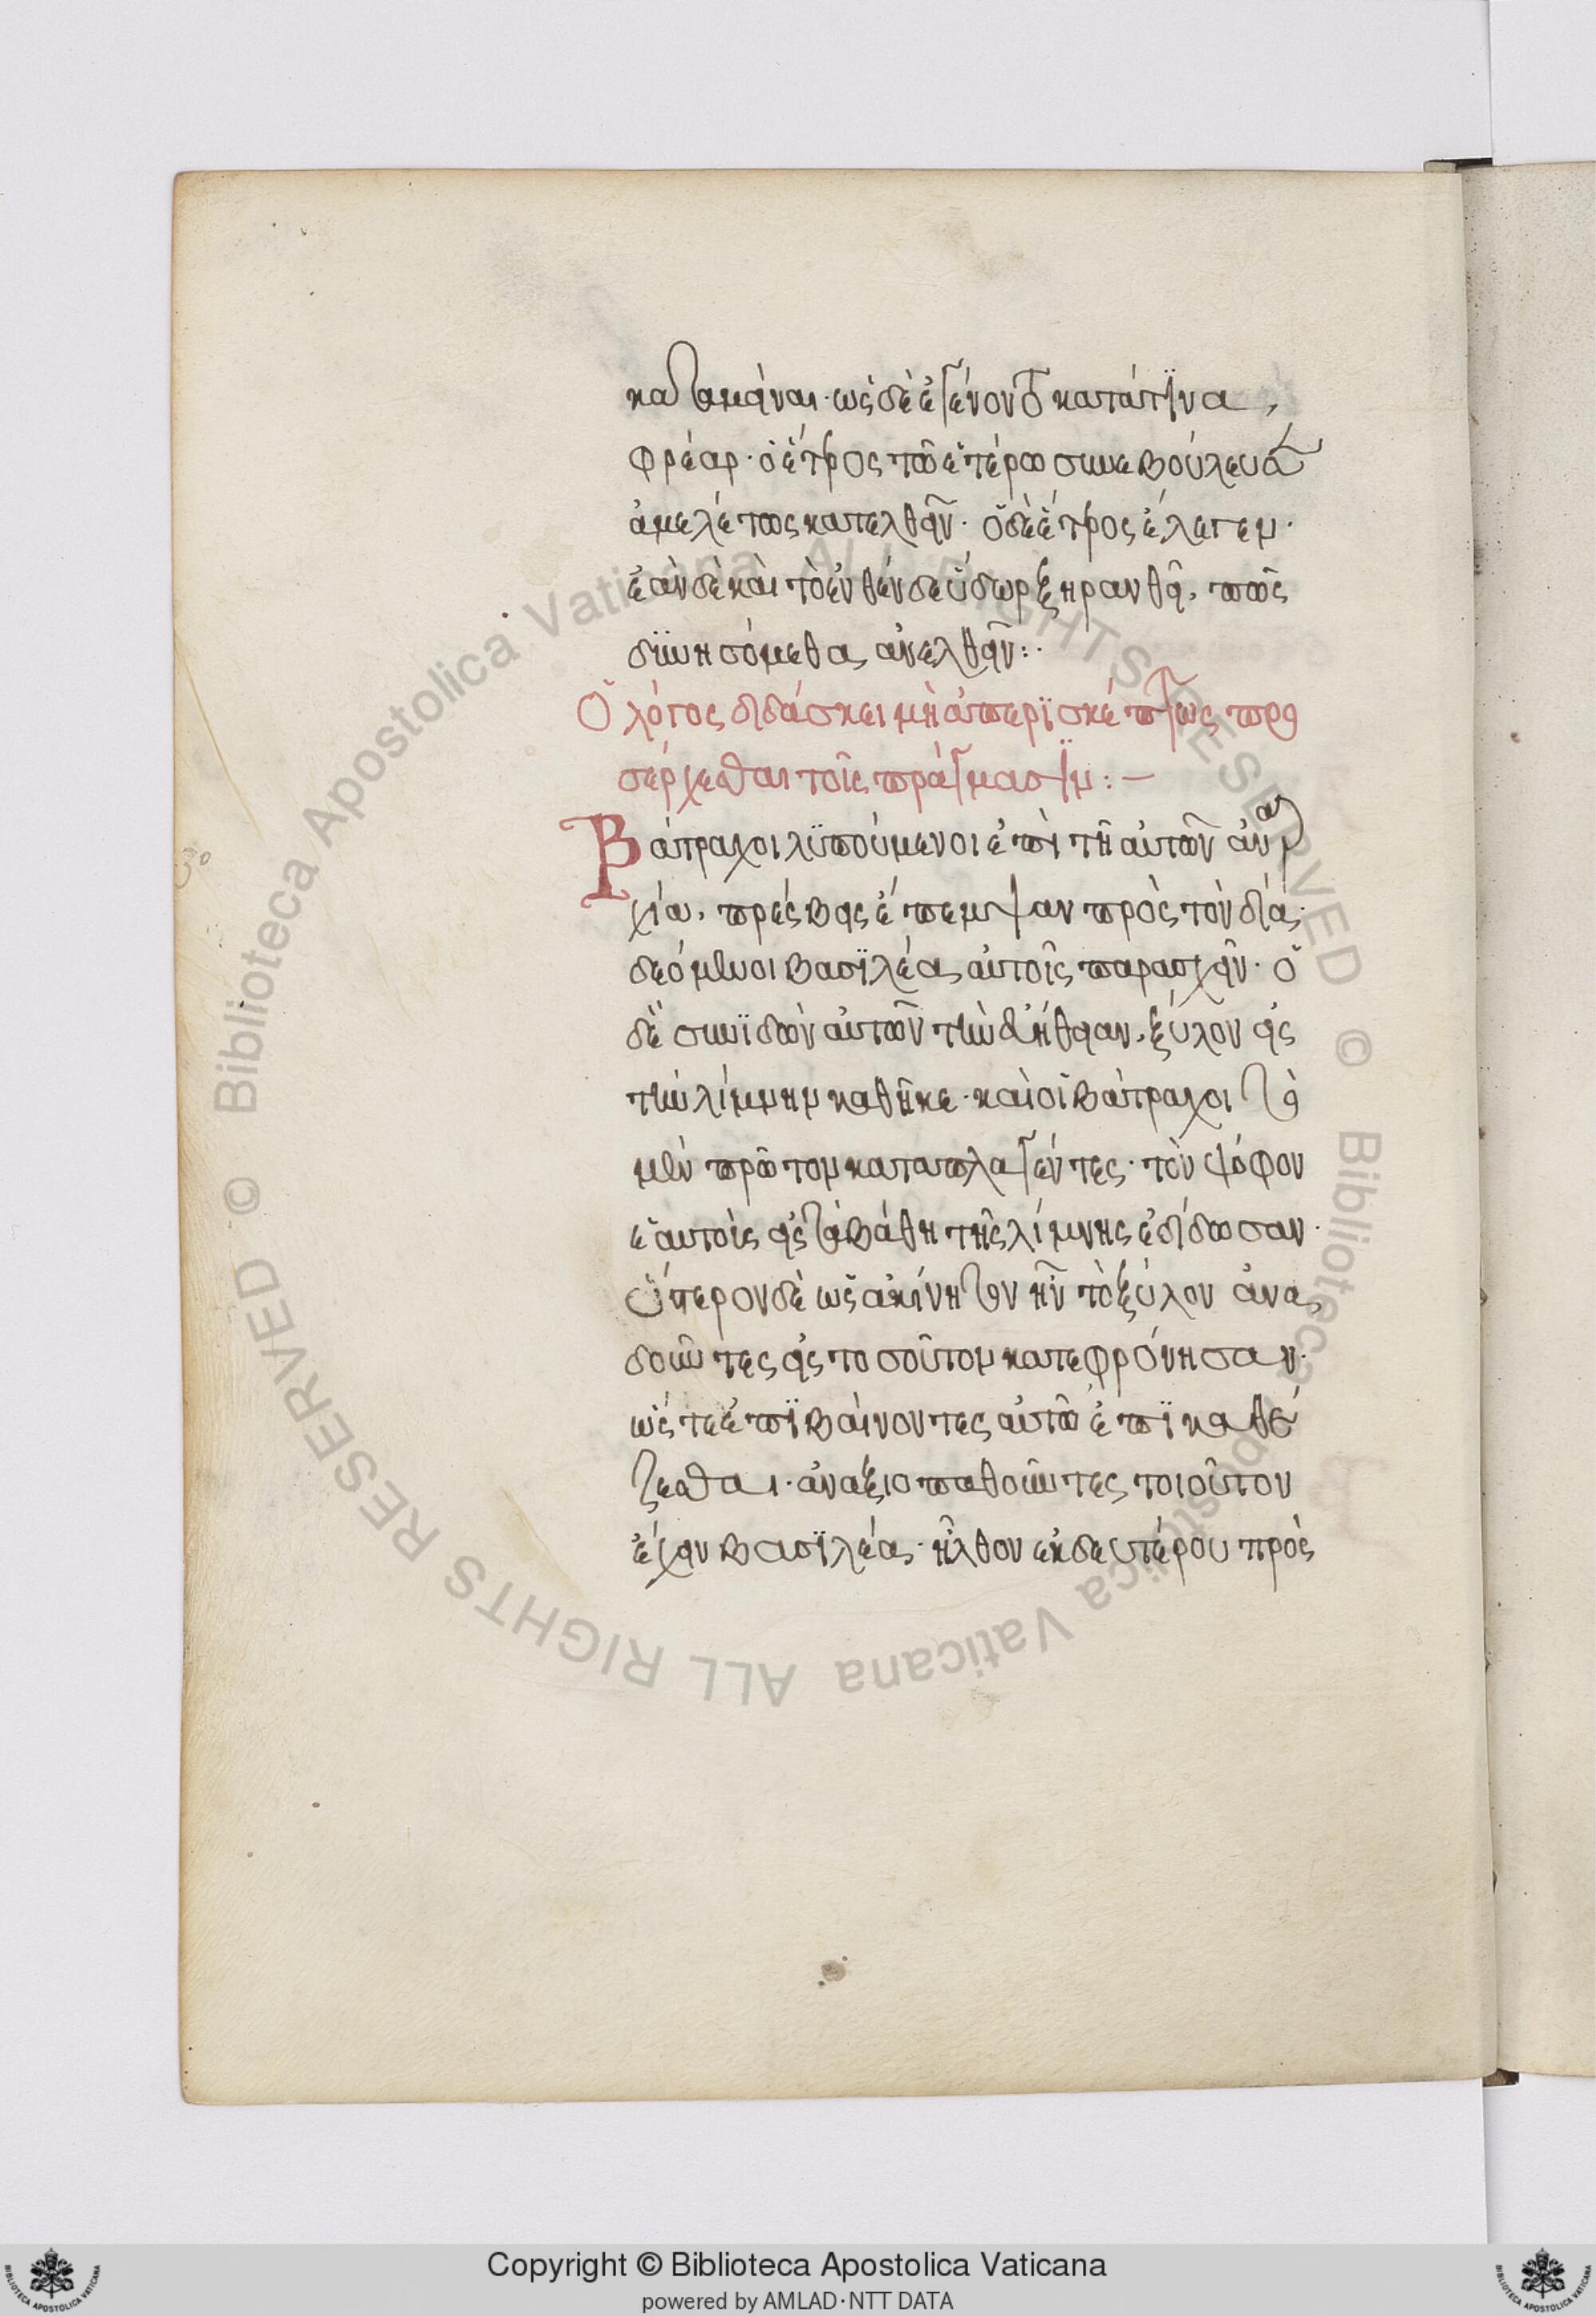 καταμεῖναι· ὡς δὲ ἐγένοντο κατά τϊνα
φρέαρ· ὁ ἕτερος τῶ ἑτέρω συνεβούλευε
ἀμελέτως κατελθεῖν· ὁ δὲ ἕτερος ἔλεγεν·
ἐὰν δὲ καὶ τὸ ἐνθένδε ὕδωρ ξηρανθῆ, πῶς
δϋνησόμεθα ἀνελθεῖν:·
Ὁ λόγος διδάσκει μὴ ἀπερϊσκέπτως προ
σέρχεσθαι τοῖς πράγμασϊν:—
Βάτραχοι λϋπούμενοι ἐπὶ τῆ αὐτῶν ἀναρ
χία, πρέσβεις ἔπεμψαν πρὸς τὸν δία·
δεόμενοι βασϊλέα αὐτοῖς παρασχεῖν· ὁ
δὲ συνϊδὼν αὐτῶν τὴν εὐήθειαν, ξύλον εἰς
τὴν λίμνην καθῆκε· καὶ οἱ βάτραχοι τὸ
μὲν πρῶτον καταπλαγέντες· τὸν ψόφον
ἑαυτοὺς εἰς τὰ βάθη τῆς λίμνης ἐδίδωσαν·
ὕστερον δὲ ὡς ἀκίνητον ἦν τὸ ξύλον ἀνα
δοῦντες εἰς τοσοῦτον κατεφρόνησαν·
ὥςτε ἐπϊβαίνοντες αὐτῶ ἐπϊκαθέ
ζεσθαι· ἀναξιοπαθοῦντες τοιοῦτον
ἔχειν βασϊλέα· ἦλθον ἐκ δευτέρου πρὸς
30
Copyright © Biblioteca Apostolica Vaticana
powered by AMLAD·NTT DATA
© Biblioteca Apostolica Vaticana ALL RIGHTS RESERVED
© Biblioteca Apostolica Vaticana ALL RIGHTS RESERVED